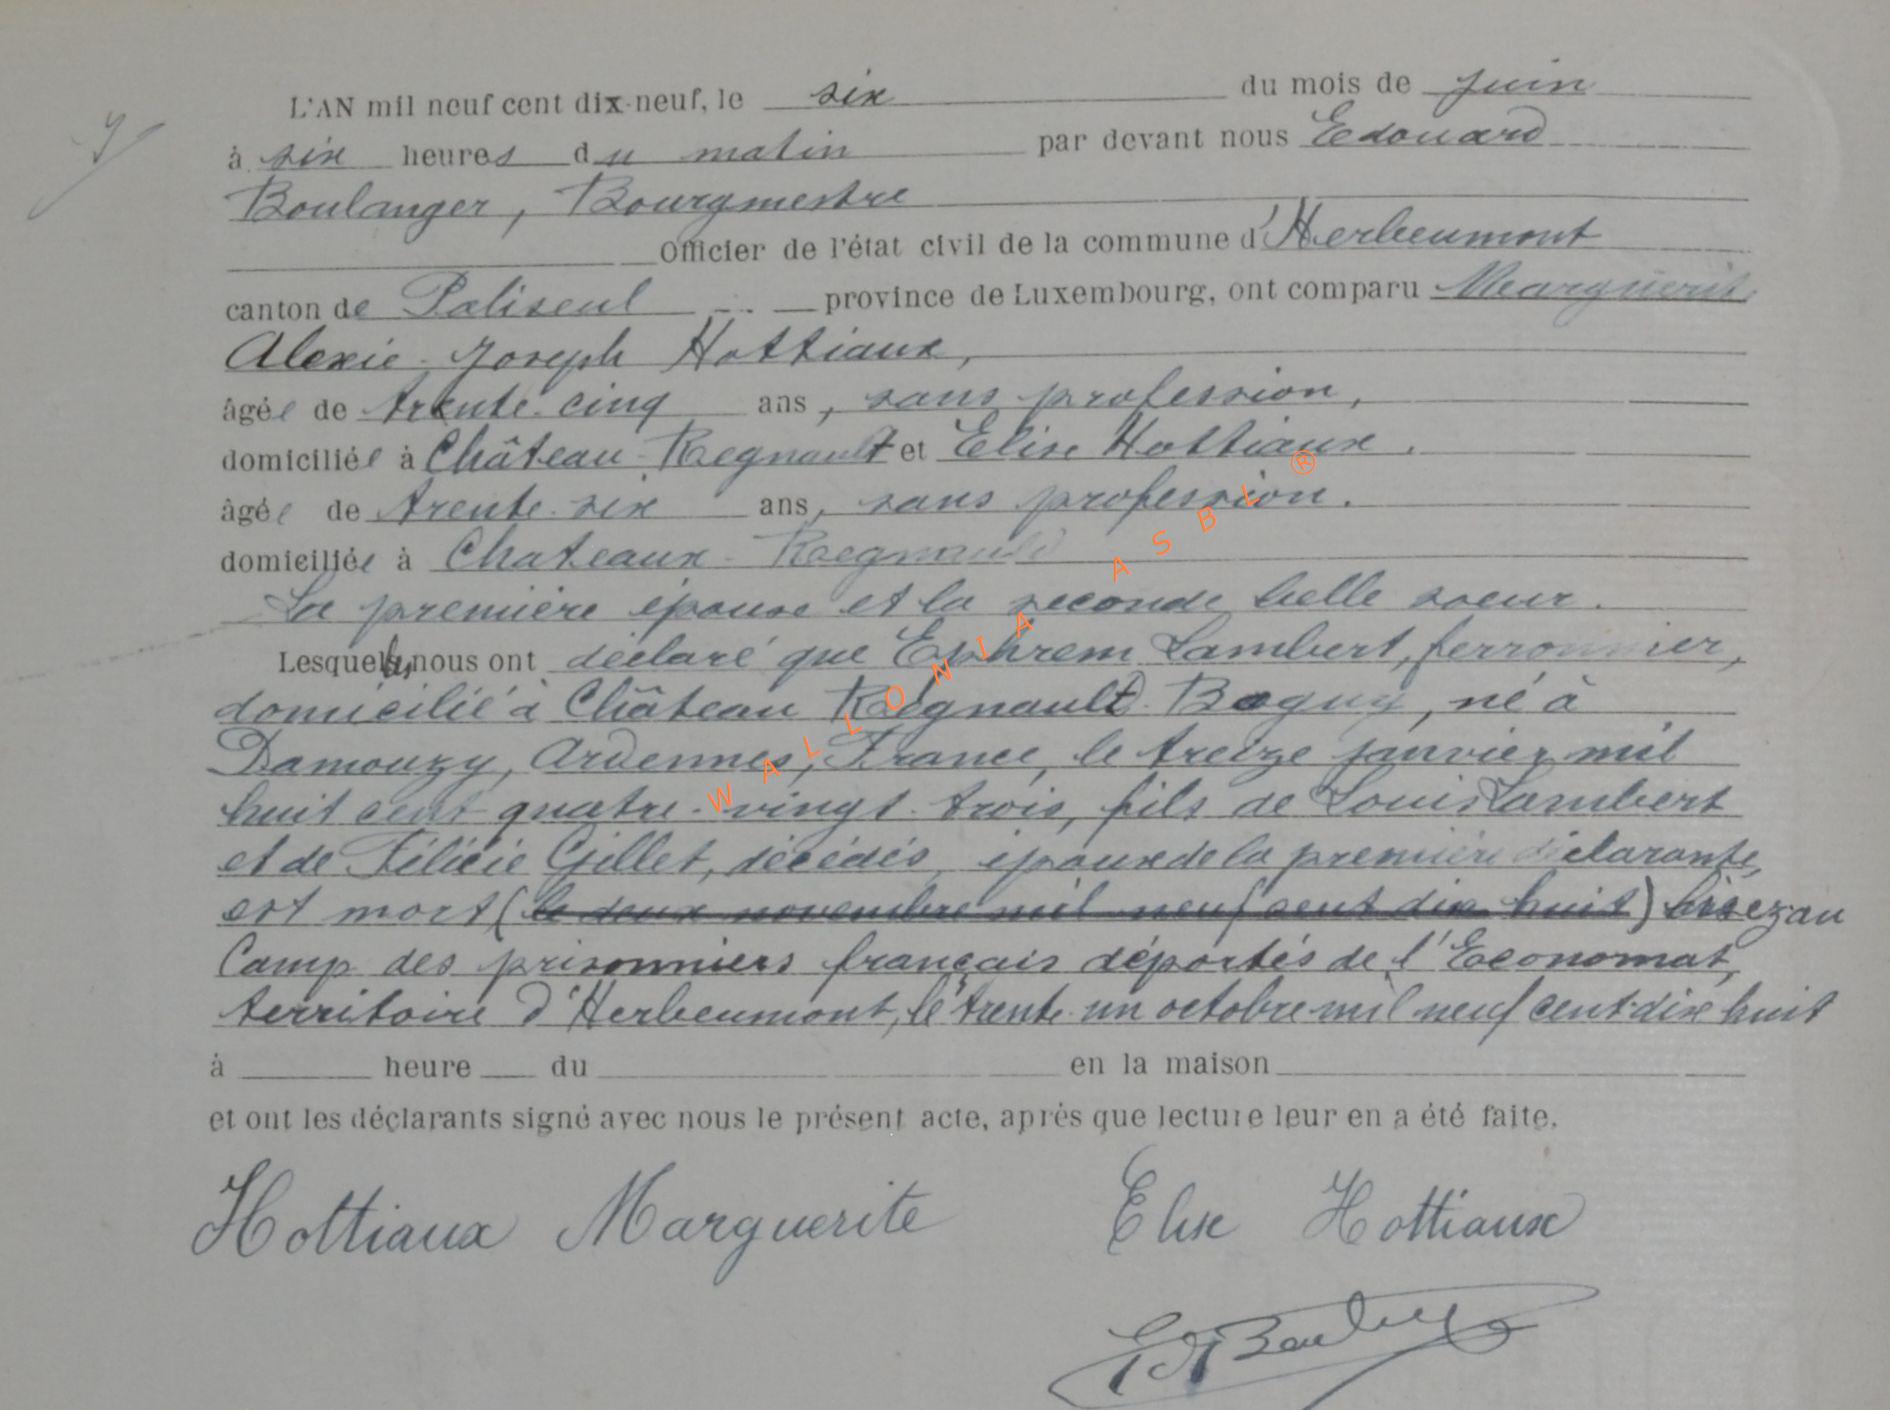 L'AN mil neuf cent dix-neuf, le six du mois de juin
à six heures du matin par devant nous Edouard
Boulanger, Bourgmestre
Officier de l'état civil de la commune d'Herbeumont
canton de Paliseul province de Luxembourg, ont comparu Marguerite
Alexie-Joseph Hottiaux,
âgée de trente-cinq ans, sans profession,
domiciliée à Château-Regnault et Elise Hottiaux.
âgée de trente-six ans, sans profession.
domiciliée à Chateaux-Regnauld
La première épouse et la seconde belle soeur.
Lesquelles nous ont déclaré que Ephrem Lambert, ferronnier,
domicilié à Château Régnault-Boguy, né à
Damouzy, Ardennes, France, le treize janvier mil
huit cent quatre-vingt-trois, fils de Louis Lambert
et de Félicie Gillet, décédés, époux de la première déclarante,
est mort (le deux novembre mil neuf cent dix huit) au
Camp des prisonniers français déportés de l'Economat,
territoire d'Herbeumont, le trente-un octobre mil neuf cent-dix huit
à heure du en la maison
et ont les déclarants signé avec nous le présent acte, après que lecture leur en a été faite.
Hottiaux Marguerite Elise Hottiaux
WALLONIA ASBL ®